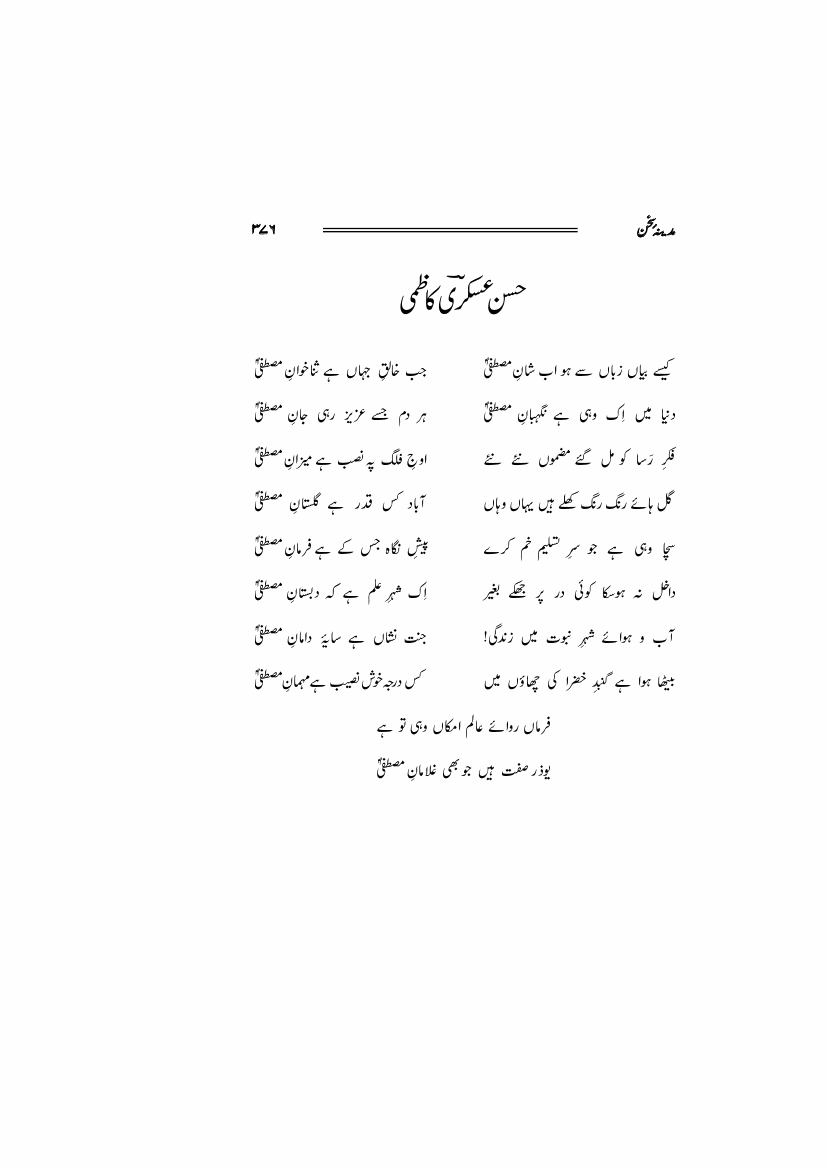 مدینۂ سخن ۳۷۶
حسن عسکریؔ کاظمی
کیسے بیاں زباں سے ہو اب شانِ مصطفیٰؐ جب خالقِ جہاں ہے ثناخوانِ مصطفیٰؐ
دنیا میں اِک وہی ہے نگہبانِ مصطفیٰؐ ہر دم جسے عزیز رہی جانِ مصطفیٰؐ
فکرِ رَسا کو مل گئے مضموں نئے نئے اوجِ فلک پہ نصب ہے میزانِ مصطفیٰؐ
گل ہائے رنگ رنگ کھلے ہیں یہاں وہاں آباد کس قدر ہے گلستانِ مصطفیٰؐ
سچا وہی ہے جو سرِ تسلیم خم کرے پیشِ نگاہ جس کے ہے فرمانِ مصطفیٰؐ
داخل نہ ہوسکا کوئی در پر جھکے بغیر اِک شہرِ علم ہے کہ دبستانِ مصطفیٰؐ
آب و ہوائے شہرِ نبوت میں زندگی! جنت نشاں ہے سایۂ دامانِ مصطفیٰؐ
بیٹھا ہوا ہے گنبدِ خضرا کی چھاؤں میں کس درجہ خوش نصیب ہے مہمانِ مصطفیٰؐ
فرماں روائے عالم امکاں وہی تو ہے
بوذر صفت ہیں جو بھی غلامانِ مصطفیٰؐ